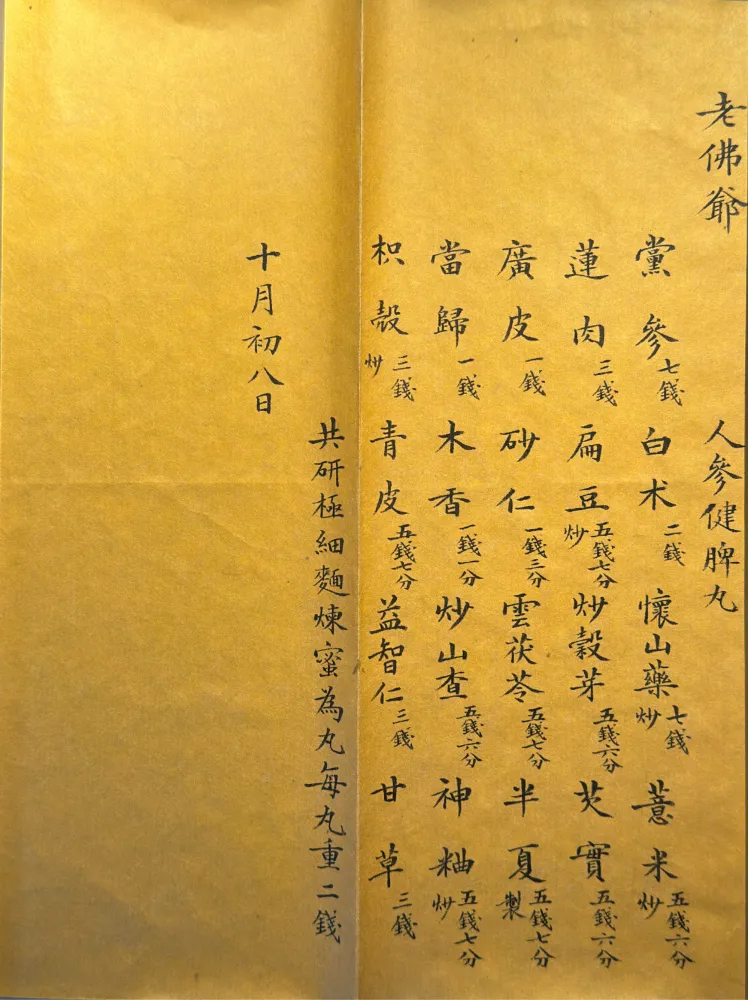 老佛爺
人參健脾丸
黨參七錢 白朮二錢 懷山藥七錢炒 薏米五錢六分炒
蓮肉三錢 扁豆五錢七分炒 炒穀芽五錢六分 芡實五錢六分
廣皮一錢 砂仁一錢三分 雲茯苓五錢七分 半夏五錢七分製
當歸一錢 木香一錢一分 炒山查五錢六分 神粬五錢七分炒
枳殼三錢炒 青皮五錢七分 益智仁三錢 甘草三錢
共研極細麵煉蜜為丸每丸重二錢
十月初八日